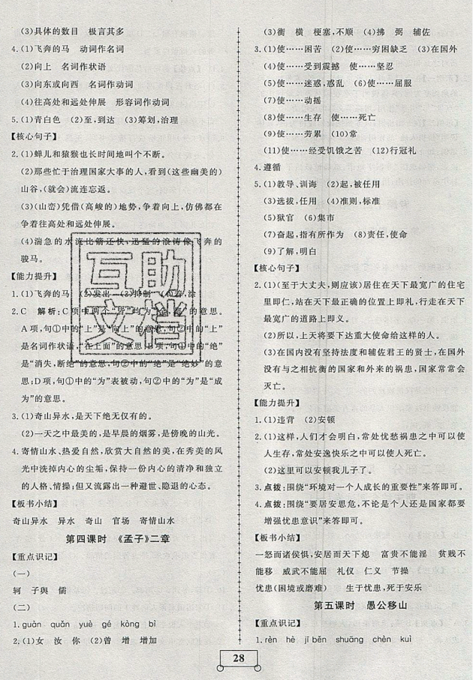 (3)具体的数目　极言其多
4.(1)飞奔的马　动词作名词
(2)向上　名词作状语
(3)向东或向西　名词作动词
(4)往高处和远处伸展　形容词作动词
5.(1)青白色　(2)至,到达　(3)筹划,治理
【核心句子】
2.(1)蝉儿和猿猴也长时间地叫个不断。
(2)那些忙于治理国家大事的人,看到(这些幽美的)
山谷,(就会)流连忘返。
(3)(山峦)凭借(高峻的)地势,争着向上,仿佛都在
争着往高处和远处伸展。
(4)湍急的水流比箭还快,迅猛的浪涛像飞奔的
骏马。
【能力提升】
1.(1)飞奔的马　(2)发出
2.C　解析:C项中两个
A项,句①中的“上”是“向上”的意思,句②中的“上”
是名词作状语,“在上面”的意思;B项,句①中的“绝”
是“消失,断绝”的意思,句②中的“绝”是“绝妙”的意
思;D项,句①中的“为”表被动,句②中的“为”是“成
为”的意思。
3.(1)奇山异水,是天下绝无仅有的。
(2)一天之中最美的,是早晨的烟雾,是傍晚的山光。
4.寄情山水、热爱自然,欣赏大自然的美,在秀美的风
光中洗掉内心的尘垢,保持一个内心的清净和独立
的人格、情怀,但又流露出一种避世、隐退的心态。
【板书小结】
奇山异水　异水　奇山　官场　寄情山水
第四课时　《孟子》二章
【重点识记】
(一)
轲　子舆　儒
(二)
1.guǎn　quǎn　yuè　gé　kóng　bì
2.(1)女　汝　你　(2)曾　增　增加
(3)衡　横　梗塞,不顺　(4)拂　弼　辅佐
4.(1)使……困苦　(2)使……穷困缺乏　(3)在国外
(4)使……受到震撼　使……坚忍
(5)使……迷惑,惑乱　(6)使……屈服
(7)使……动摇
(8)使……生存　使……死亡
(9)使……劳累　(10)穷
(11)使……经受饥饿之苦　(12)行冠礼
4.遵循
5.(1)教导、训诲　(2)起,被任用
(3)选拔,任用　(4)准则,标准
(5)狱官　(6)集市
(7)奋起,指有所作为　(8)责任,使命
(9)了解,明白
【核心句子】
2.(1)(至于大丈夫,则应该)居住在天下最宽广的住宅
里即仁,站在天下最正确的位置上即礼,行走在天下
最宽广的道路上即义。
(2)所以,上天将要下达重大使命给这样的人。
(3)在国内没有坚持法度和辅佐君王的贤士,在国外
没有与之相抗衡的国家和外患的国家,国家常常会
灭亡。
【能力提升】
1.(1)违背　(2)安顿
2.(1)这样,人们才会明白,常处忧愁祸患之中可以使
人生存,常处安逸快乐之中可以使人死亡。
(2)这里可以安顿我儿子了。
3.点拨:围绕“环境对一个人成长的重要性”来答即可。
4.点拨:围绕“要居安思危,不论是个人还是国家都要
增强忧患意识”来答即可。
【板书小结】
一怒而诸侯惧,安居而天下熄　富贵不能淫　贫贱不
能移　威武不能屈　礼仪　仁义　节操
忧患(困境或磨难)　生于忧患,死于安乐
第五课时　愚公移山
【重点识记】
1.rèn　hé　jī běn　shuāng　chèn　kuì
28
互助
文档